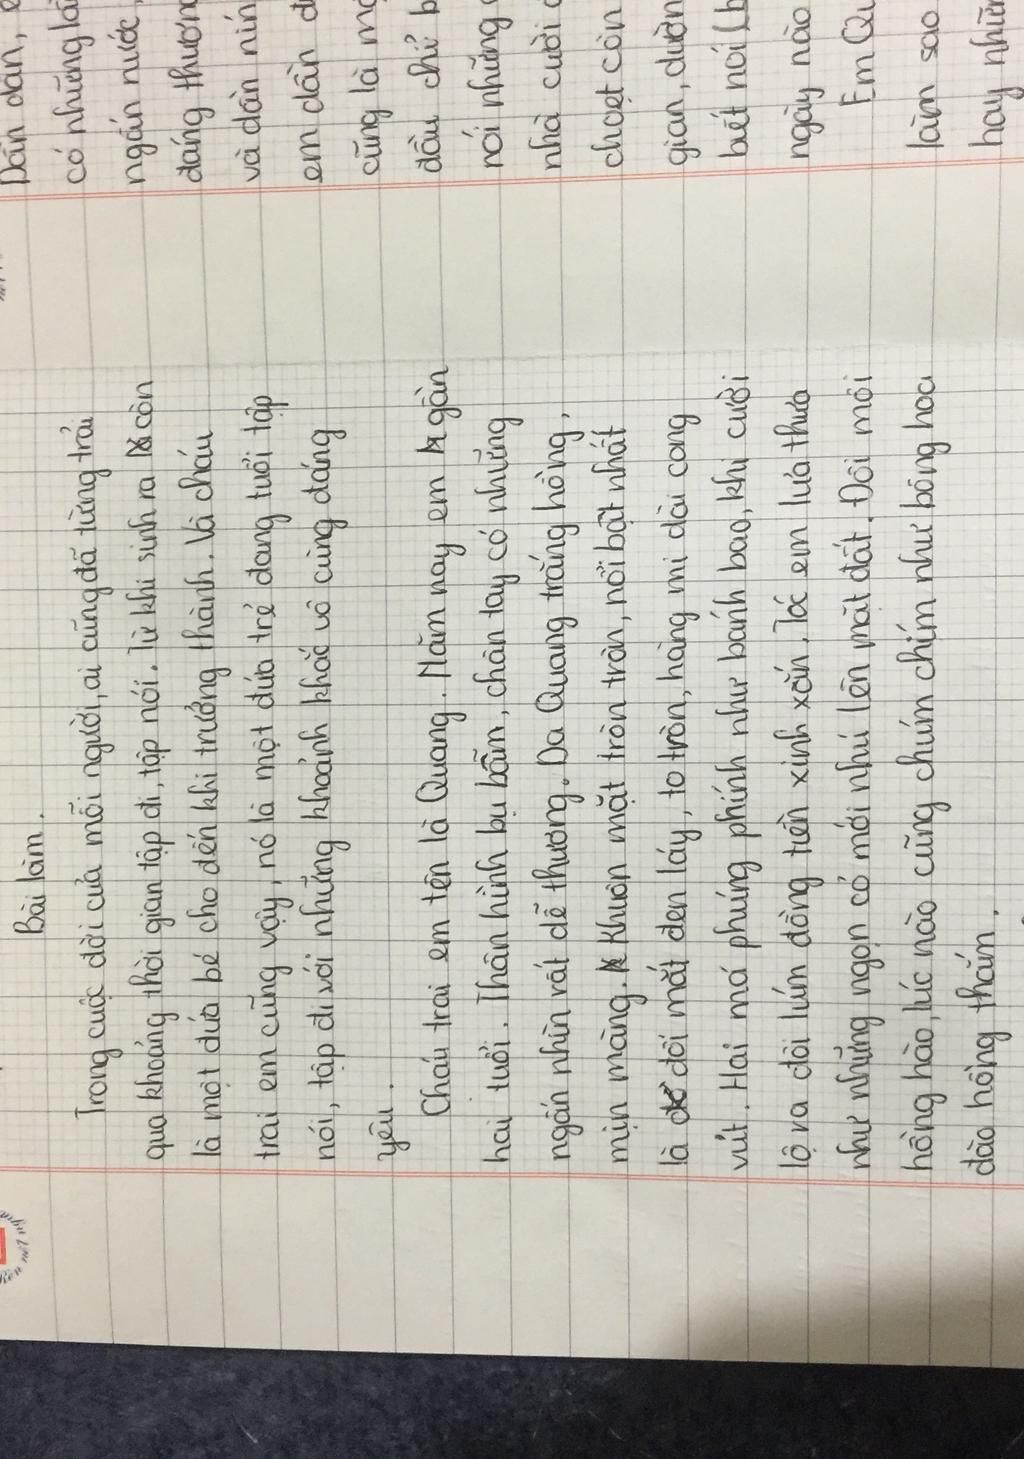 Bài làm.
Trong cuộc đời của mỗi người, ai cũng đã từng trải
qua khoảng thời gian tập đi, tập nói. Từ khi sinh ra còn
là một đứa bé cho đến khi trưởng thành. Và cháu
trai em cũng vậy, nó là một đứa trẻ đang tuổi tập
nói, tập đi với những khoảnh khắc vô cùng đáng
yêu.
Cháu trai em tên là Quang. Năm nay em gần
hai tuổi. Thân hình bụ bẫm, chân tay có những
ngấn nhìn rất dễ thương. Da Quang trắng hồng,
mịn màng. Khuôn mặt tròn tròn, nổi bật nhất
là đôi mắt đen láy, to tròn, hàng mi dài cong
vút. Hai má phúng phính như bánh bao, khi cười
lộ ra đôi lúm đồng tiền xinh xắn. Tóc em lưa thưa
như những ngọn cỏ mới nhú lên mặt đất. Đôi môi
hồng hào, lúc nào cũng chúm chím như bông hoa
đào hồng thắm.
Dần dần,
có những lần
ngấn nước,
đáng thương
và dần nín
em dần
cũng là
đầu chỉ
nói những
nhà cười
choẹt còn
gian, dường
biết nói (b
ngày nào
Em Qu
làm sao
hay nhữn